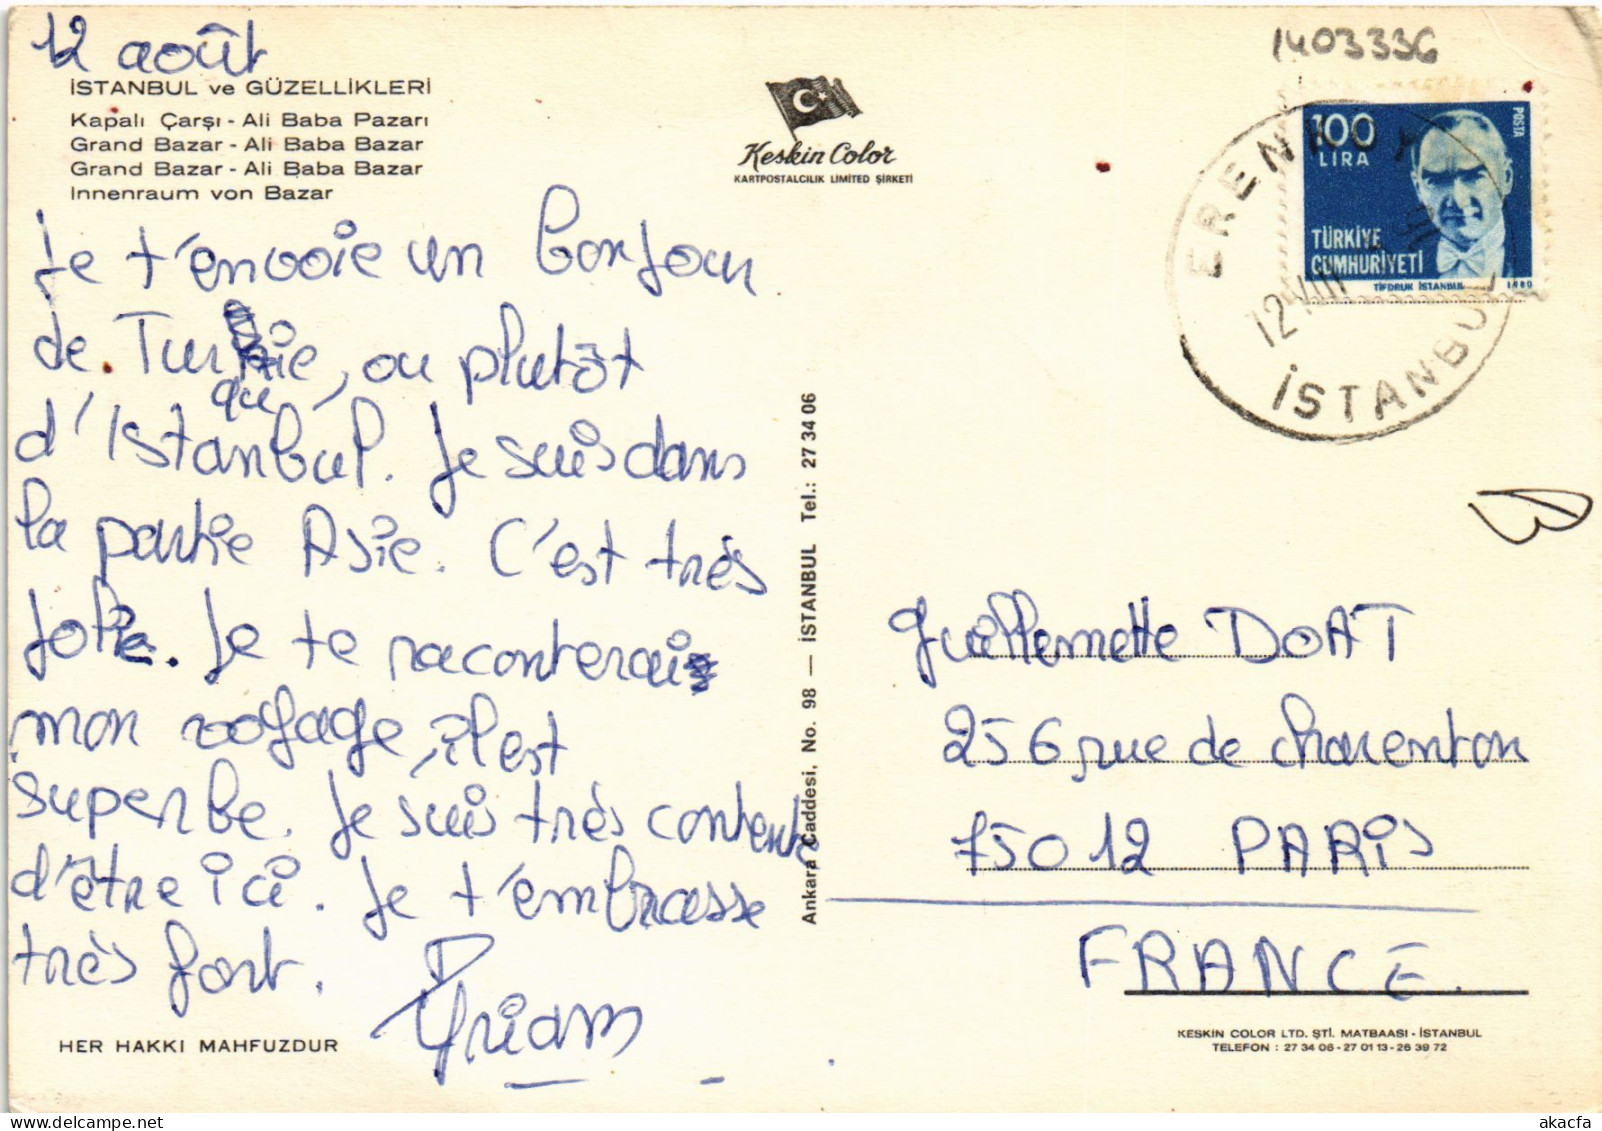 12 août
İSTANBUL ve GÜZELLİKLERİ
Kapalı Çarşı - Ali Baba Pazarı
Grand Bazar - Ali Baba Bazar
Grand Bazar - Ali Baba Bazar
Innenraum von Bazar
Je t'envoie un bonjour
de Turquie, ou plutôt
d'Istanbul. Je suis dans
la partie Asie. C'est très
jolie. Je te raconterai
mon voyage, il est
superbe. Je suis très contente
d'être ici. Je t'embrasse
très fort.
HER HAKKI MAHFUZDUR
Keskin Color
KARTPOSTALCILIK LIMITED ŞİRKETİ
Ankara Caddesi, No. 98 — İSTANBUL Tel.: 27 34 06
1403336
100
LIRA
POSTA
TÜRKİYE
CUMHURİYETİ
TİFDRUK İSTANBUL 1980
ERENKÖY
İSTANBUL
Guillemette DOAT
256 rue de Charenton
75012 PARIS
FRANCE.
KESKIN COLOR LTD. ŞTİ. MATBAASI - İSTANBUL
TELEFON : 27 34 06 - 27 01 13 - 26 39 72
akacfa